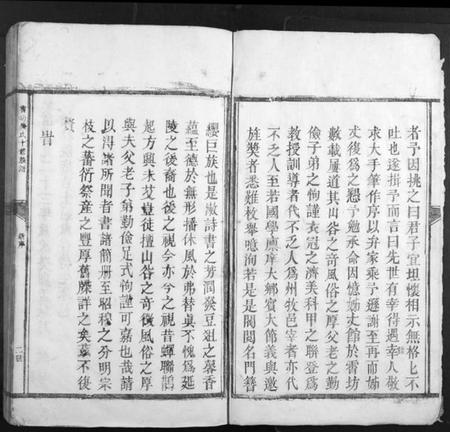 者予因挑之曰君子宜坦懷相示無格匕不
吐也遂揖予而言曰先世有幸得遇幸人敬
求大手筆作序以弁家乘予遜謝至再而姊
丈復為之慫予勉承命因憶姊丈館於青坊
數載屢道其山谷之奇風俗之厚父老之勤
儉子弟之恂謹衣冠之濟美科甲之聯登為
教授訓導者代不乏人為州牧邑宰者亦代
不乏人至若國學廩庠大鄉賓大節義與邀
旌獎者悉難枚舉噫洵若是是閥閱名門簪
纓巨族也是漱詩書之芳潤發豆俎之馨香
蘊至德於無形播休風於弗替眞不愧為延
陵之後裔也後之視今亦今之視昔蟬聯謟
起方興未艾豈徒擅山谷之奇徵風俗之厚
與夫父老子弟勤儉足式恂謹可嘉也哉請
以得諸所聞者書諸簡册至昭穆之分明宗
枝之蕃衍祭産之豐厚舊牒詳之矣嘉不復
贅
旹
氏十修族譜